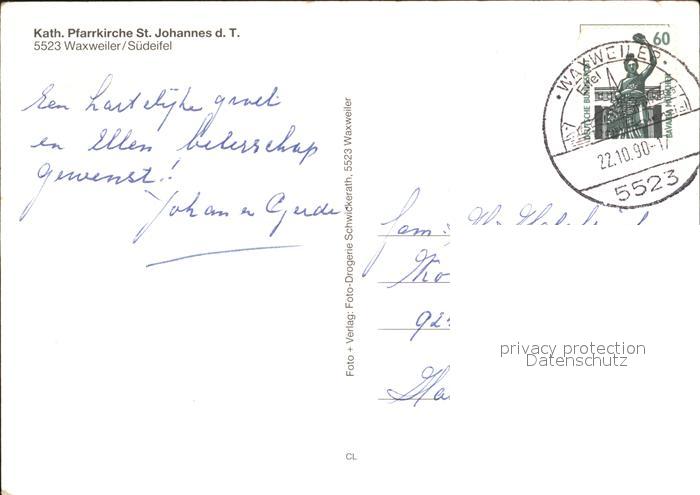 Kath. Pfarrkirche St. Johannes d. T.
5523 Waxweiler/Südeifel
Een hartelijke groet
en Ellen beterschap
gewenst!!
Johan en Gerda
Foto + Verlag: Foto-Drogerie Schwickerath, 5523 Waxweiler
CL
60
DEUTSCHE BUNDESPOST
BAVARIA MÜNCHEN
WAXWEILER
Eifel
22.10.90-17
5523
Fam:
92
privacy protection
Datenschutz